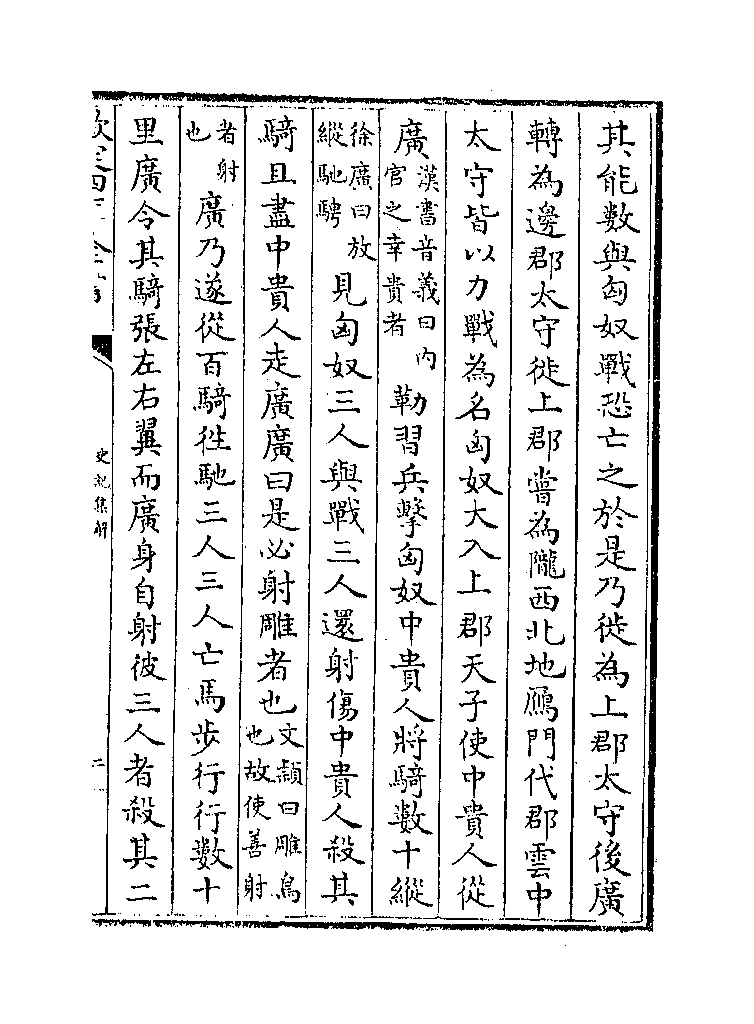 其能數與匈奴戰恐亡之於是乃徙為上郡太守後廣
轉為邊郡太守徙上郡嘗為隴西北地鴈門代郡雲中
太守皆以力戰為名匈奴大入上郡天子使中貴人從
廣漢書音義曰内官之幸貴者勒習兵擊匈奴中貴人將騎數十縱
徐廣曰放縱馳騁見匈奴三人與戰三人還射傷中貴人殺其
騎且盡中貴人走廣廣曰是必射雕者也文頴曰雕鳥也故使善射
者射也廣乃遂從百騎徃馳三人三人亡馬步行行數十
里廣令其騎張左右翼而廣身自射彼三人者殺其二
欽定四庫全書
史記集解
二